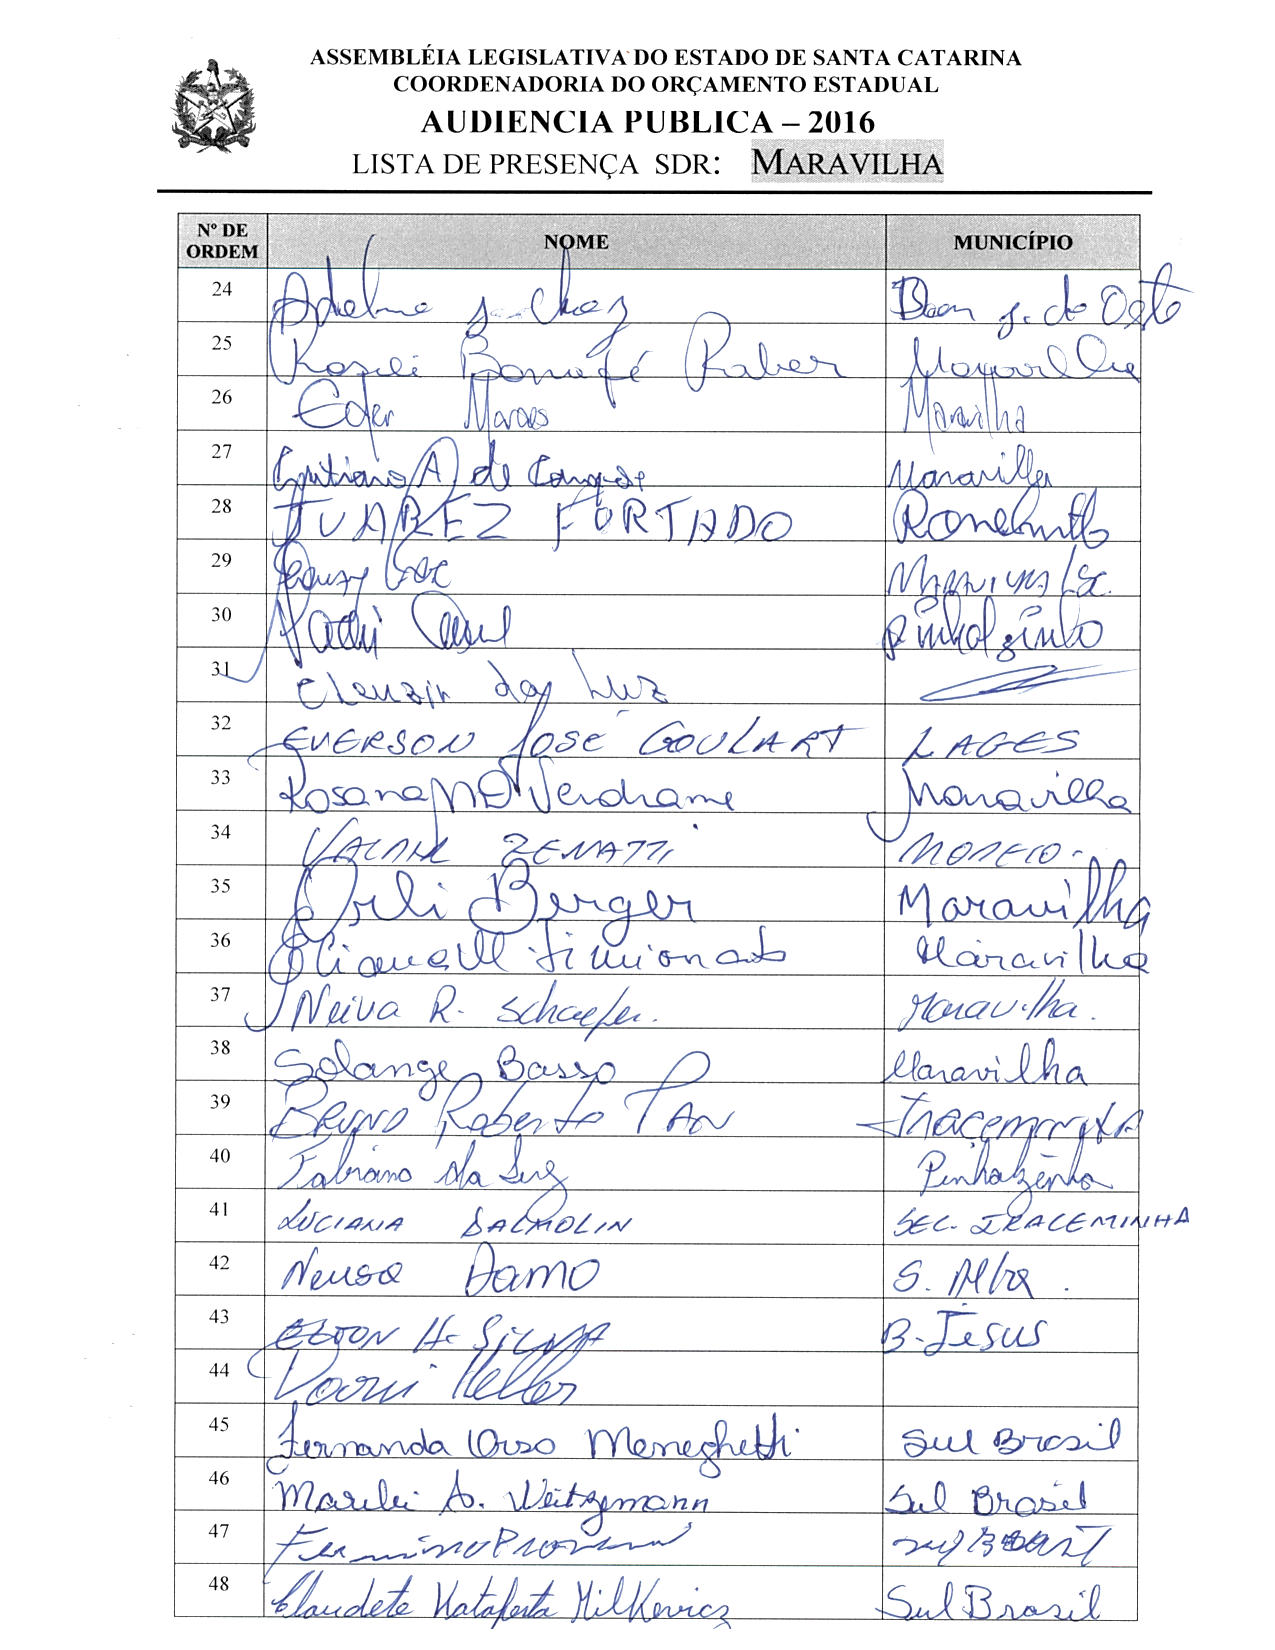 ASSEMBLÉIA LEGISLATIVA DO ESTADO DE SANTA CATARINA
COORDENADORIA DO ORÇAMENTO ESTADUAL
AUDIENCIA PUBLICA – 2016
LISTA DE PRESENÇA SDR: MARAVILHA
Nº DE ORDEM NOME MUNICÍPIO
24 Bom J. do Oeste
25 Roseli Bonafé Raber Maravilha
26 Eder Moraes Maravilha
27 A. de Maravilha
28 JUAREZ FURTADO
29
30 Pinhalzinho
31 da Luz
32 EVERSON JOSÉ GOULART LAGES
33 Rosana Verdrame Maravilha
34 ZENATTI MODELO
35 Orli Berger Maravilha
36 Maravilha
37 Neiva R. Schaefer. Maravilha.
38 Solange Basso Maravilha
39 BRUNO Roberto PAN
40 Fabiano da Luz Pinhalzinho
41 LUCIANA DALMOLIN SEC. IRACEMINHA
42 Neusa Damo S. Alta.
43 H. SILVA B. JESUS
44 Heller
45 Fernanda Orso Meneghetti Sul Brasil
46 Marilei A. Weitzemann Sul Brasil
47 Sul BRASIL
48 Claudete Milkevicz Sul Brasil